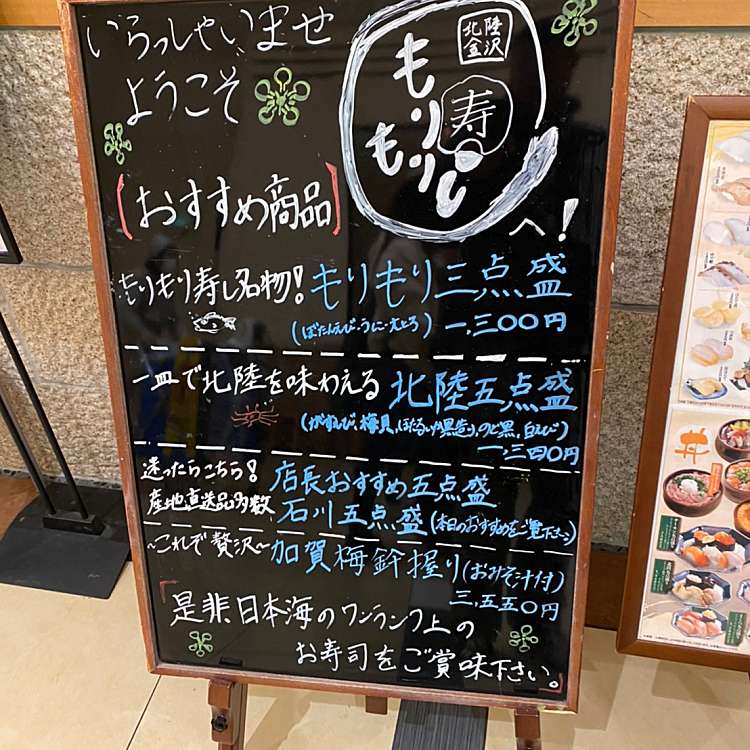 いらっしゃいませ
ようこそ
北陸
金沢
もりもり
寿し
へ!
【おすすめ商品】
もりもり寿し名物! もりもり三点盛
(ぼたんえび・うに・大とろ) 一,三〇〇円
一皿で北陸を味わえる 北陸五点盛
(がすえび、梅貝、ほたるいか黒造り、のど黒、白えび)
一,三四〇円
迷ったらこちら! 店長おすすめ五点盛
産地直送品多数 石川五点盛 (本日のおすすめをご覧下さい)
~これぞ贅沢~ 加賀梅鉢握り (おみそ汁付)
三,五五〇円
「是非日本海のワンランク上の
お寿司をご賞味下さい。」
丼